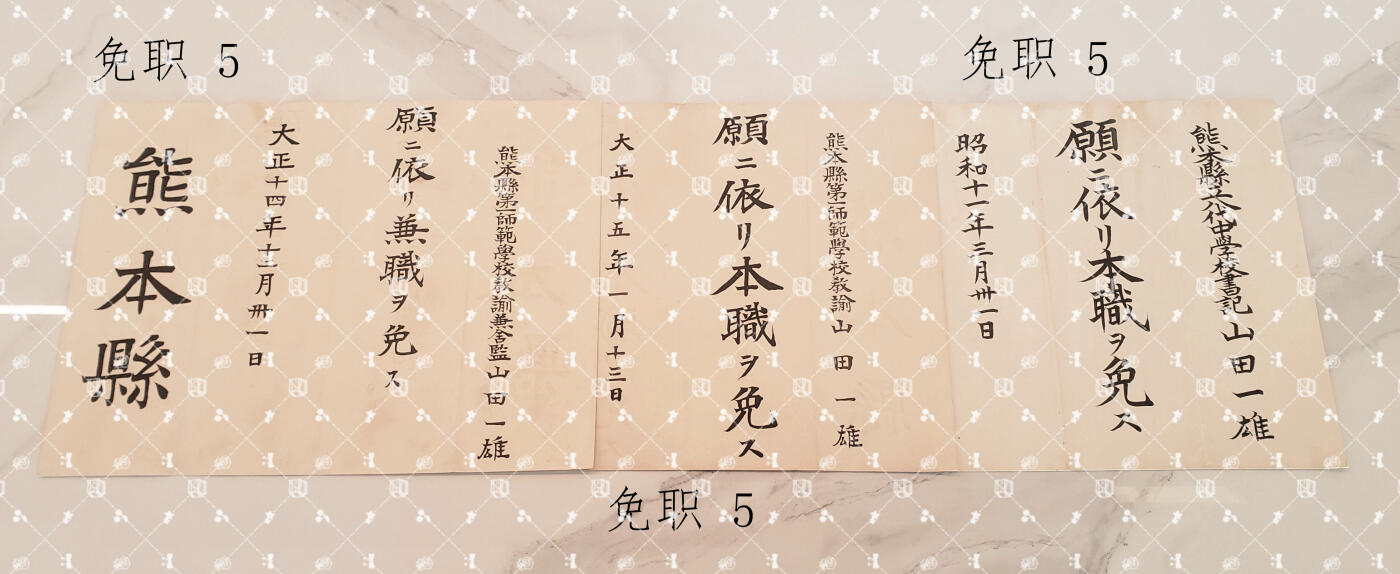 免职 5
免职 5
熊本縣立八代中學校書記山田一雄
願ニ依リ本職ヲ免ス
昭和十一年三月卅一日
熊本縣第一師範學校教諭山田一雄
願ニ依リ本職ヲ免ス
大正十五年一月十三日
熊本縣第一師範學校教諭兼舍監山田一雄
願ニ依リ兼職ヲ免ス
大正十四年十二月卅一日
熊本縣
免职 5